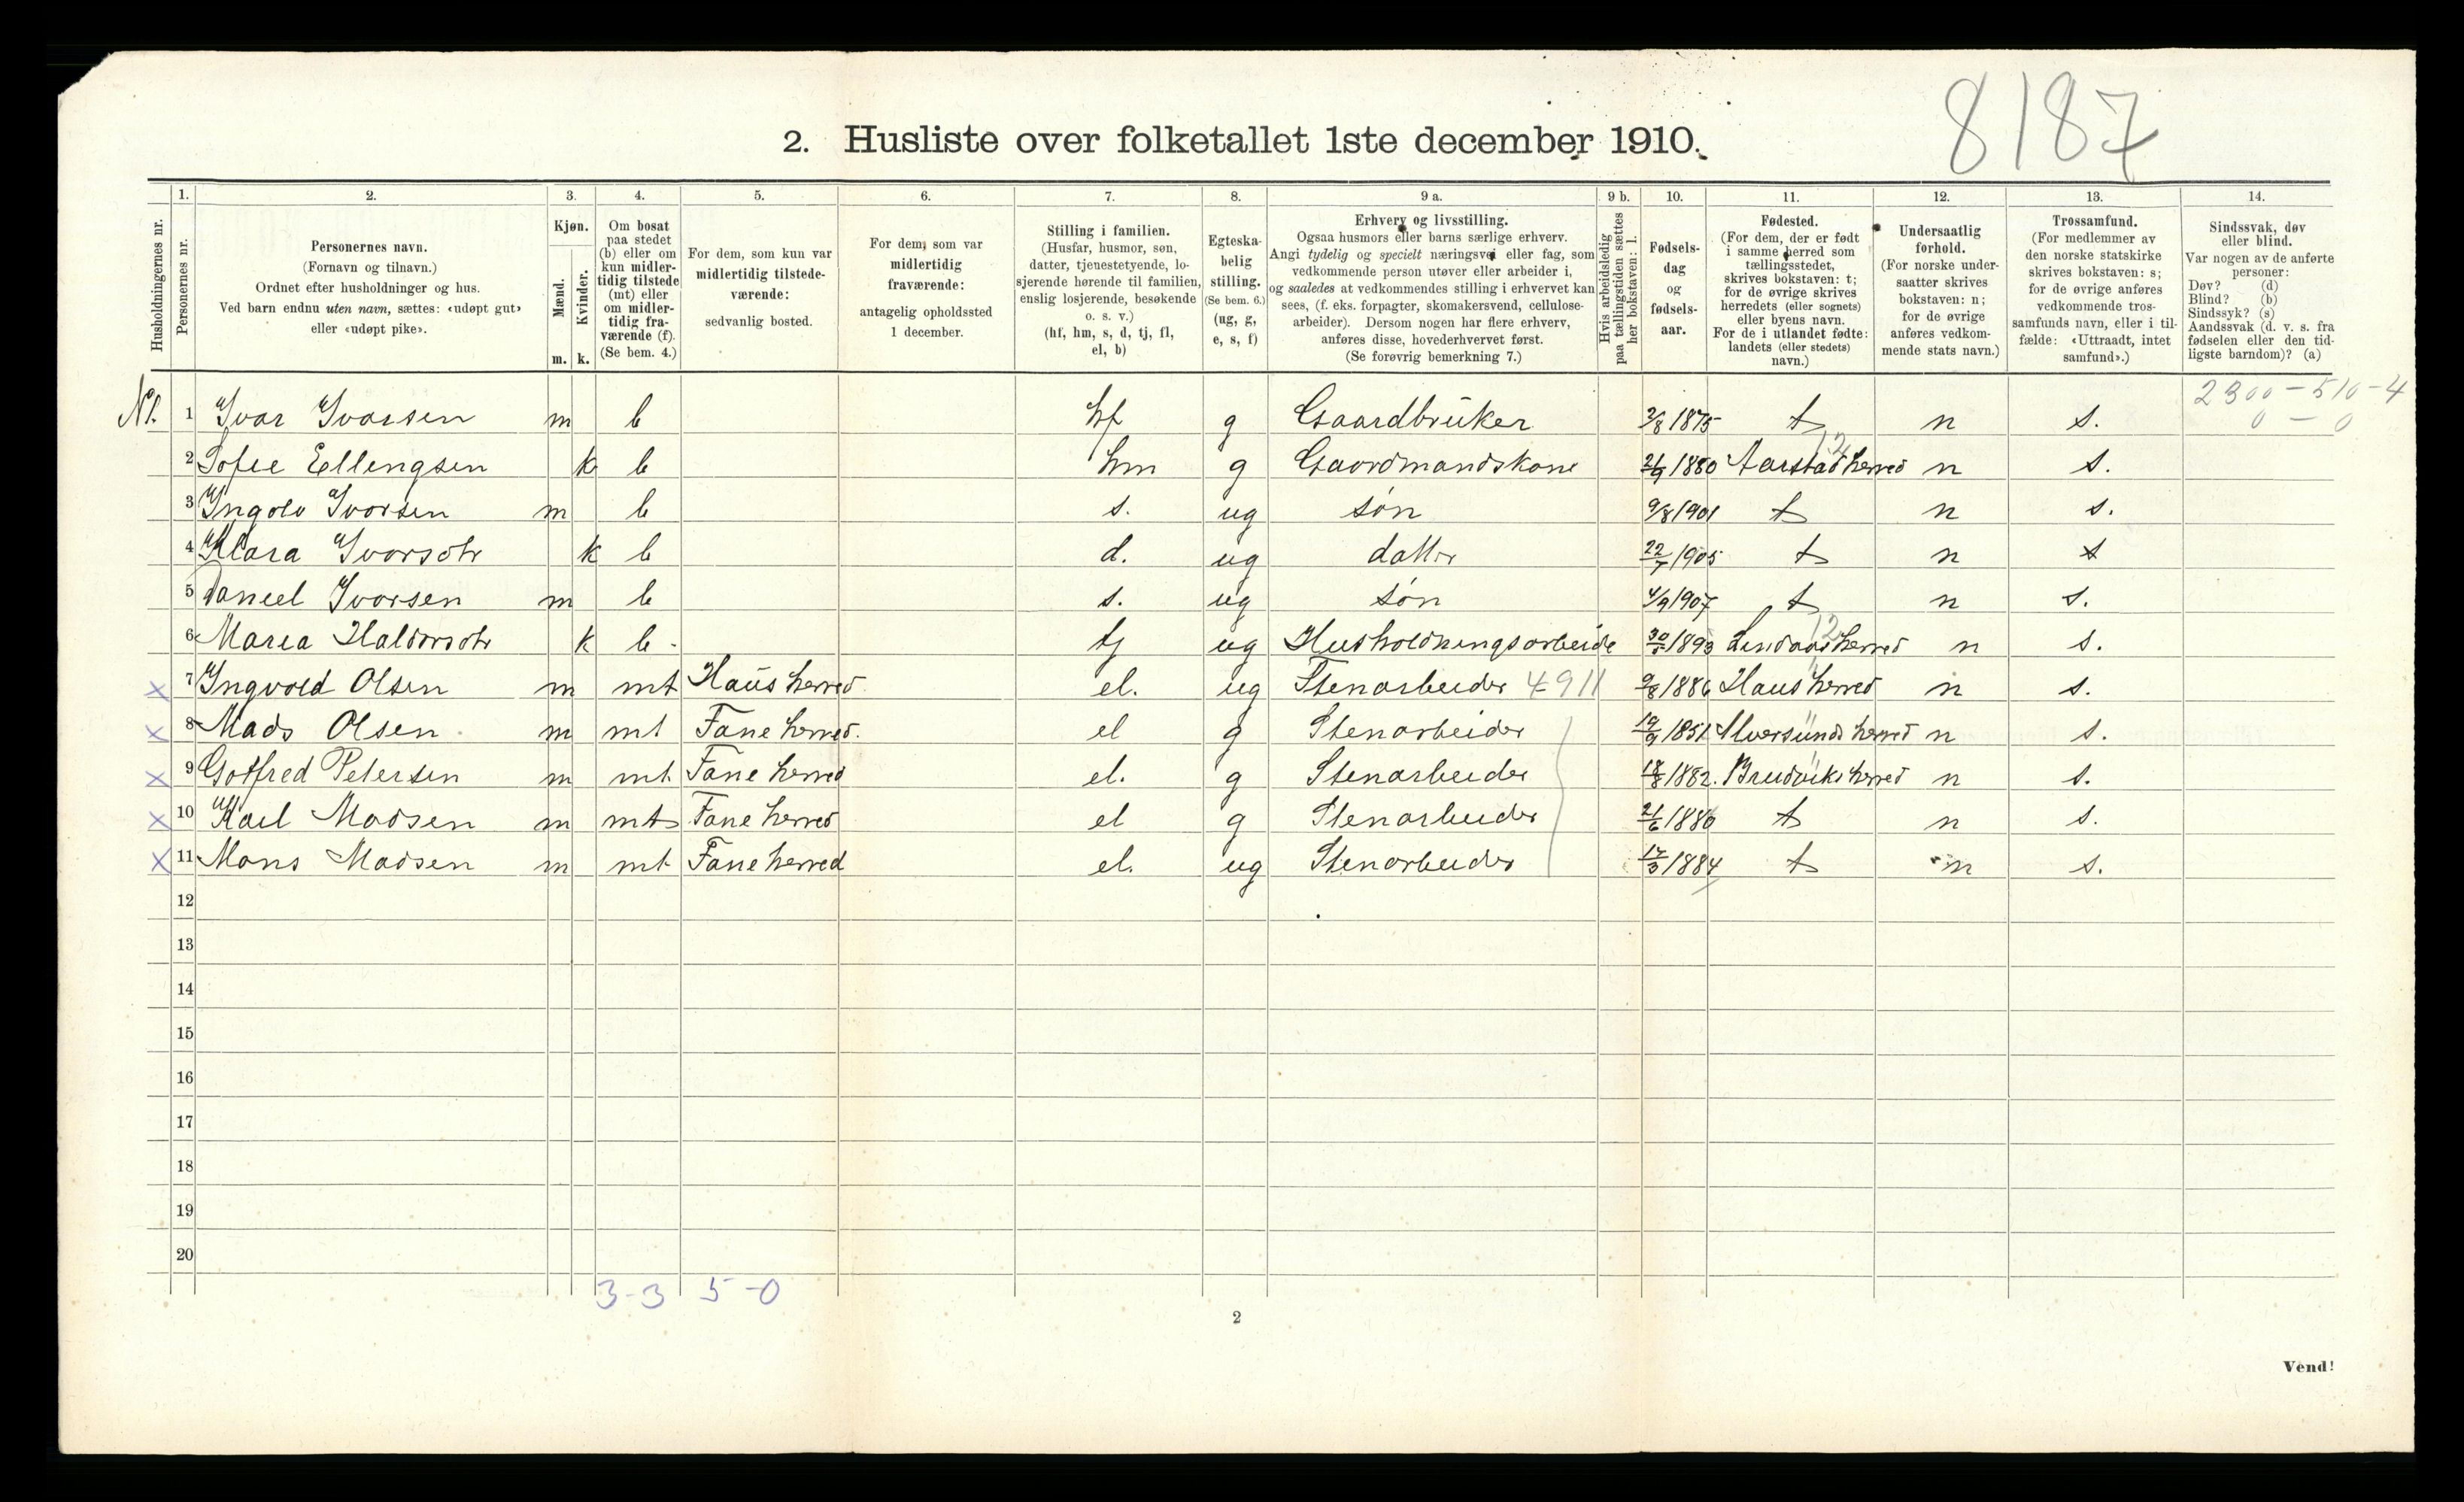 8187
2. Husliste over folketallet 1ste december 1910.
Husholdningernes nr.
1. Personernes nr.
2. Personernes navn.
(Fornavn og tilnavn.)
Ordnet efter husholdninger og hus.
Ved barn endnu uten navn, sættes: «udøpt gut»
eller «udøpt pike».
3. Kjøn.
Mænd. m.
Kvinder. k.
4. Om bosat
paa stedet
(b) eller om
kun midler-
tidig tilstede
(mt) eller
om midler-
tidig fra-
værende (f).
(Se bem. 4.)
5. For dem, som kun var
midlertidig tilstede-
værende:
sedvanlig bosted.
6. For dem, som var
midlertidig
fraværende:
antagelig opholdssted
1 december.
7. Stilling i familien.
(Husfar, husmor, søn,
datter, tjenestetyende, lo-
sjerende hørende til familien,
enslig losjerende, besøkende
o. s. v.)
(hf, hm, s, d, tj, fl,
el, b)
8. Egteska-
belig
stilling.
(Se bem. 6.)
(ug, g,
e, s, f)
9 a. Erhverv og livsstilling.
Ogsaa husmors eller barns særlige erhverv.
Angi tydelig og specielt næringsvei eller fag, som
vedkommende person utøver eller arbeider i,
og saaledes at vedkommendes stilling i erhvervet kan
sees, (f. eks. forpagter, skomakersvend, cellulose-
arbeider). Dersom nogen har flere erhverv,
anføres disse, hovederhvervet først.
(Se forøvrig bemerkning 7.)
9 b. Hvis arbeidsledig
paa tællingstiden sættes
her bokstaven: l.
10. Fødsels-
dag
og
fødsels-
aar.
11. Fødested.
(For dem, der er født
i samme herred som
tællingsstedet,
skrives bokstaven: t;
for de øvrige skrives
herredets (eller sognets)
eller byens navn.
For de i utlandet fødte:
landets (eller stedets)
navn.)
12. Undersaatlig
forhold.
(For norske under-
saatter skrives
bokstaven: n;
for de øvrige
anføres vedkom-
mende stats navn.)
13. Trossamfund.
(For medlemmer av
den norske statskirke
skrives bokstaven: s;
for de øvrige anføres
vedkommende tros-
samfunds navn, eller i til-
fælde: «Uttraadt, intet
samfund».)
14. Sindssvak, døv
eller blind.
Var nogen av de anførte
personer:
Døv? (d)
Blind? (b)
Sindssyk? (s)
Aandssvak (d. v. s. fra
fødselen eller den tid-
ligste barndom)? (a)
2300-510-4
0 - 0
N1. 1 Ivar Ivarsen m b hf g Gaardbrüker 2/8 1875 t n s.
2 Sofie Ellengsen k b hm g Gaardmandskone 1880 Aarstad herred n s.
3 Ingolv Ivarsen m b s. ug søn 9/8 1901 t n s.
4 Klara Ivarsdtr k b d. ug datter 22/7 1905 t n s
5 Daniel Ivarsen m b s. ug søn 4/9 1907 t n s.
6 Maria Haldorsdtr k b tj ug Husholdningsarbeide 1893 Lindaas herred n s.
x 7 Ingvald Olsen m mt Haüs herred el. ug Stenarbeider 4911 9/8 1886 Haus herred n s.
x 8 Mads Olsen m mt Fane herred. el g Stenarbeider 19/9 1851 Alversünds herred n s.
x 9 Gotfred Petersen m mt Fane herred el. g Stenarbeider 18/8 1882. Bruviks herred n s.
x 10 Karl Madsen m mt Fane herred el g Stenarbeider 21/6 1880 t n s.
x 11 Mons Madsen m mt Fane herred el. ug Stenarbeider 17/3 1884 t n s.
12
13
14
15
16
17
18
19
20
3-3 5-0
2
Vend!